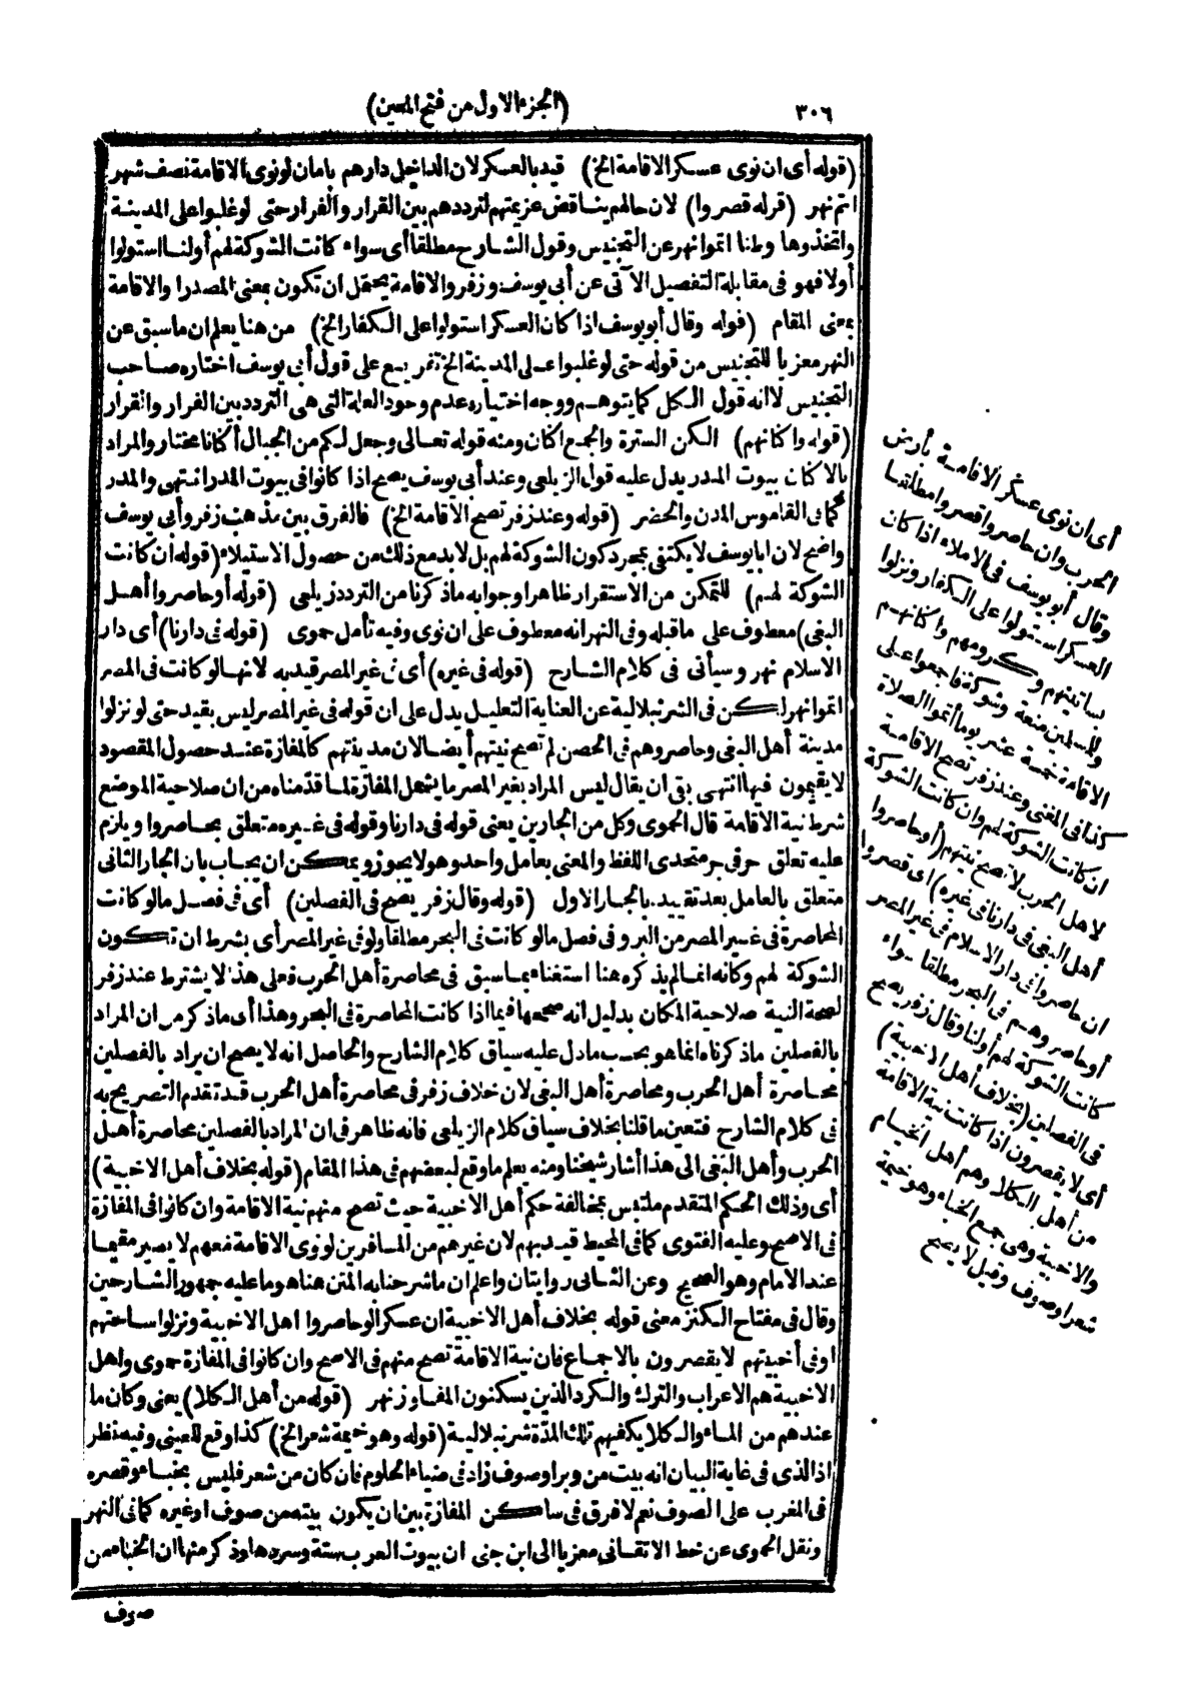 ٣٠٦
(الجزء الاول من فتح المعين)
(قوله أى ان نوى عسكر الاقامة الخ) قيد بالعسكر لان الداخل دارهم بامان لو نوى الاقامة نصف شهر
اتم نهر (قوله قصروا) لان حالهم يناقض عزيمتهم لترددهم بين القرار والفرار حتى لو غلبوا على المدينة
واتخذوها وطنا اتموا نهر عن التجنيس وقول الشارح مطلقا أى سواء كانت الشوكة لهم أو لنا استولوا
أولا فهو فى مقابلة التفصيل الآتى عن أبى يوسف وزفر والاقامة يحتمل ان تكون بمعنى المصدر او الاقامة
بمعنى المقام (قوله وقال أبو يوسف اذا كان العسكر استولوا على الكفار الخ) من هنا يعلم ان ما سبق عن
النهر معزيا للتجنيس من قوله حتى لو غلبوا على المدينة الخ تفريع على قول أبى يوسف اختاره صاحب
التجنيس لا انه قول الكل كما يتوهم ووجه اختياره عدم وجود العلة التى هى التردد بين الفرار والقرار
(قوله واكنانهم) الكن السترة والجمع اكنان ومنه قوله تعالى وجعل لكم من الجبال أكنانا مختار والمراد
بالاكنان بيوت المدر يدل عليه قول الزيلعى وعند أبى يوسف يصح اذا كانوا فى بيوت المدر انتهى والمدر
كما فى القاموس المدن والحضر (قوله وعند زفر تصح الاقامة الخ) فالفرق بين مذهب زفر وأبى يوسف
واضح لان ابا يوسف لا يكتفى بمجرد كون الشوكة لهم بل لا بد مع ذلك من حصول الاستيلاء (قوله ان كانت
الشوكة لهم) للتمكن من الاستقرار ظاهرا وجوابه ماذكرنا من التردد زيلعى (قوله أو حاصروا أهل
البغى) معطوف على ما قبله وفى النهر انه معطوف على ان نوى وفيه تأمل حموى (قوله فى دارنا) أى دار
الاسلام نهر وسيأتى فى كلام الشارح (قوله فى غيره) أى فى غير المصر قيد به لانها لو كانت فى المصر
اتموا نهر لكن فى الشرنبلالية عن العناية التعليل يدل على ان قوله فى غير المصر ليس بقيد حتى لو نزلوا
مدينة أهل البغى وحاصروهم فى الحصن لم تصح نيتهم أيضا لان مدينتهم كالمفازة عند حصول المقصود
لا يقيمون فيها انتهى بقى ان يقال ليس المراد بغير المصر ما يشمل المفازة لما قدمناه من ان صلاحية الموضع
شرط نية الاقامة قال الحموى وكل من الجارين يعنى قوله فى دارنا وقوله فى غيره متعلق بحاصروا ويلزم
عليه تعلق حرفى جر متحدى اللفظ والمعنى بعامل واحد وهو لا يجوز ويمكن ان يجاب بان الجار الثانى
متعلق بالعامل بعد تقييده بالجار الاول (قوله وقال زفر يصح فى الفصلين) أى فى فصل ما لو كانت
المحاصرة فى غير المصر من البر وفى فصل ما لو كانت فى البحر مطلقا ولو فى غير المصر أى بشرط ان تكون
الشوكة لهم وكانه انما لم يذكره هنا استغناء بما سبق فى محاصرة أهل الحرب فعلى هذا لا يشترط عند زفر
لصحة النية صلاحية المكان بدليل انه صححها فيما اذا كانت المحاصرة فى البحر وهذا أى ماذكر من ان المراد
بالفصلين ماذكرناه انما هو بحسب ما دل عليه سياق كلام الشارح والحاصل انه لا يصح ان يراد بالفصلين
محاصرة أهل الحرب ومحاصرة أهل البغى لان خلاف زفر فى محاصرة أهل الحرب قد تقدم التصريح به
فى كلام الشارح فتعين ما قلنا بخلاف سياق كلام الزيلعى فانه ظاهر فى ان المراد بالفصلين محاصرة أهل
الحرب وأهل البغى الى هذا أشار شيخنا ومنه يعلم ما وقع لبعضهم فى هذا المقام (قوله بخلاف أهل الاخبية)
أى وذلك الحكم المتقدم ملتبس بمخالفة حكم أهل الاخبية حيث تصح منهم نية الاقامة وان كانوا فى المفازة
فى الاصح وعليه الفتوى كما فى المحيط قيد بهم لان غيرهم من المسافرين لو نوى الاقامة معهم لا يصير مقيما
عند الامام وهو الصحيح وعن الثانى روايتان واعلم ان ما شرحنا به المتن هنا هو ما عليه جمهور الشارحين
وقال فى مفتاح الكنز معنى قوله بخلاف أهل الاخبية ان عسكرا لو حاصروا اهل الاخبية ونزلوا ساحتهم
او فى أخبيتهم لا يقصرون بالاجماع فان نية الاقامة تصح منهم فى الاصح وان كانوا فى المفازة حموى واهل
الاخبية هم الاعراب والترك والكرد الذين يسكنون المفاوز نهر (قوله من أهل الكلا) يعنى وكان ما
عندهم من الماء والكلا يكفيهم تلك المدة شرنبلالية (قوله وهو خيمة شعر الخ) كذا وقع للعينى وفيه نظر
اذ الذى فى غاية البيان انه بيت من وبر او صوف زاد فى ضياء الحلوم فان كان من شعر فليس بخباء وقصره
فى المغرب على الصوف نعم لا فرق فى ساكن المفازة بين ان يكون بيته من صوف او غيره كما فى النهر
ونقل الحموى عن خط الاتقانى معزيا الى ابن جنى ان بيوت العرب ستة وسردها وذكر منها ان الخباء من
صوف
أى ان نوى عسكر الاقامة بأرض
الحرب وان حاصروا قصروا مطلقا
وقال أبو يوسف فى الاملاء اذا كان
العسكر استولوا على الكفار ونزلوا
بساتينهم وكرومهم واكنانهم
وللمسلمين منعة وشوكة فاجمعوا على
الاقامة خمسة عشر يوما أتموا الصلاة
كذا فى المغنى وعند زفر تصح الاقامة
ان كانت الشوكة لهم وان كانت الشوكة
لاهل الحرب لا تصح نيتهم (أو حاصروا
أهل البغى فى دارنا فى غيره) اى قصروا
ان حاصروا فى دار الاسلام فى غير المصر
أو حاصروهم فى البحر مطلقا سواء
كانت الشوكة لهم أو لنا وقال زفر يصح
فى الفصلين (بخلاف أهل الاخبية)
أى لا يقصرون اذا كانت نية الاقامة
من أهل الكلا وهم أهل الخيام
والاخبية وهى جمع الخباء وهو خيمة
شعر او صوف وقيل لا يصح